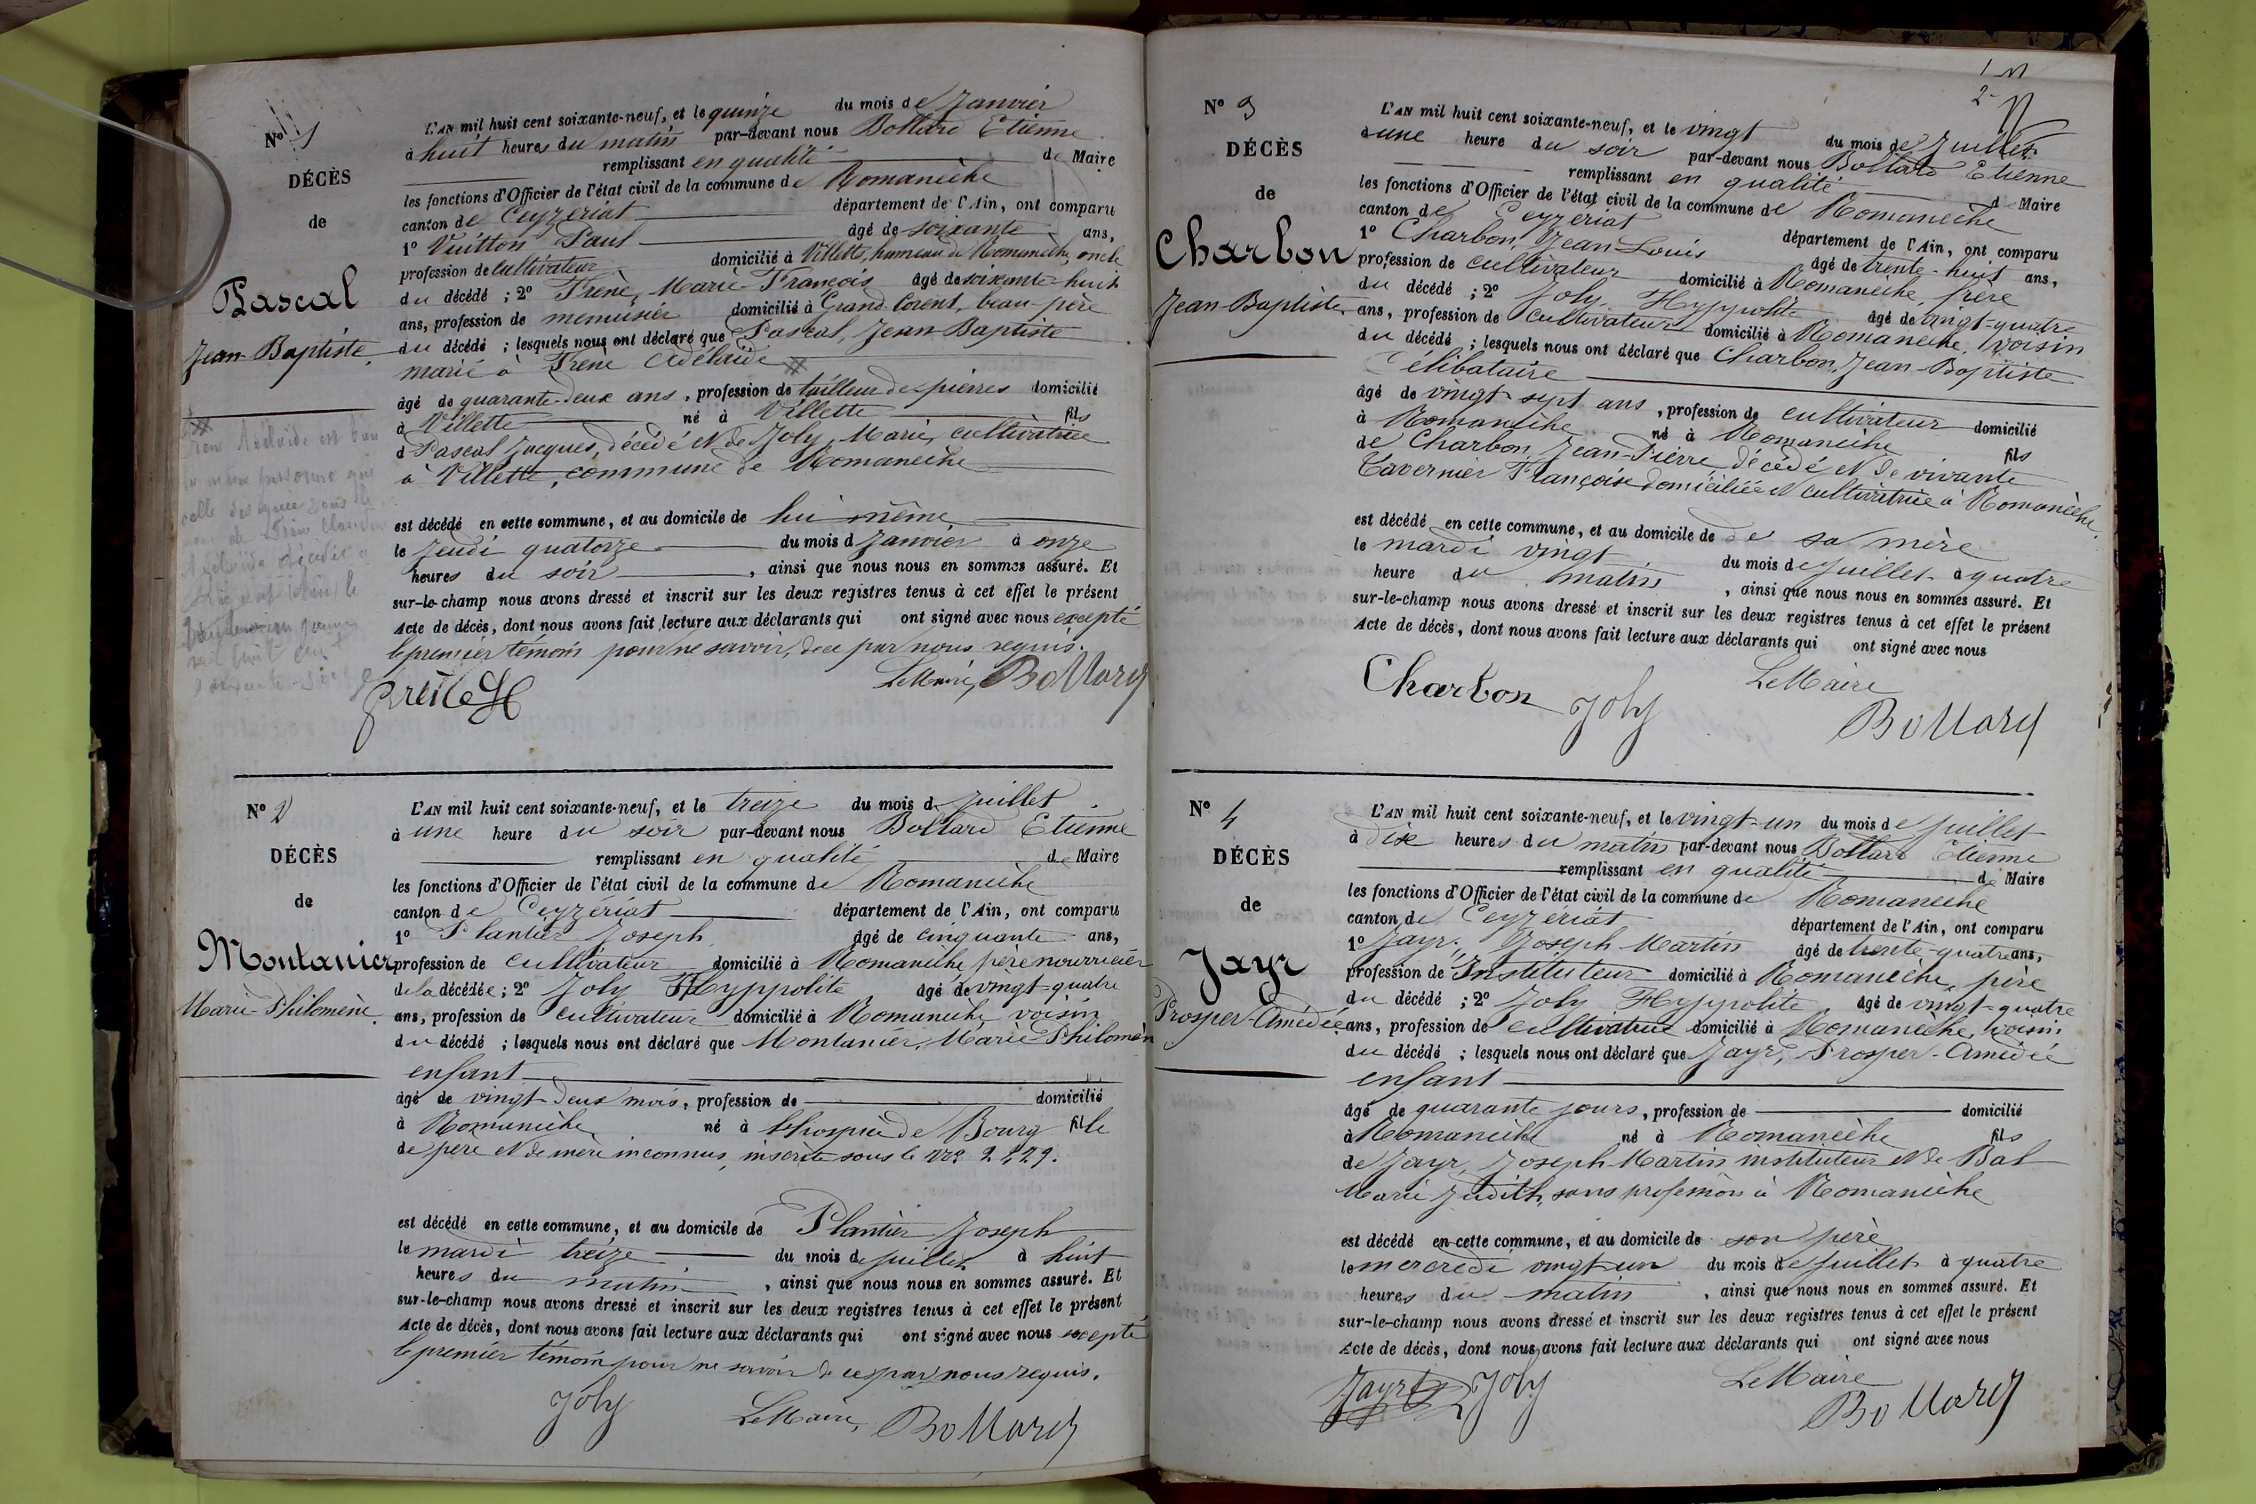 Nº 1
DÉCÈS
de
Pascal
Jean-Baptiste
L'AN mil huit cent soixante-neuf, et le quinze du mois de Janvier
à huit heures du matin par-devant nous Bollard Etienne
remplissant en qualité de Maire
les fonctions d'Officier de l'état civil de la commune de Romanèche
canton de Ceyzeriat département de l'Ain, ont comparu
1º Vuitton Paul âgé de soixante ans,
profession de cultivateur domicilié à Villette, hameau de Romanèche, oncle
du décédé ; 2º Frène, Marie-François âgé de soixante-huit
ans, profession de menuisier domicilié à Grand Corent, beau-père
du décédé ; lesquels nous ont déclaré que Pascal, Jean Baptiste
marié à Frène Adélaïde
âgé de quarante-deux ans, profession de tailleur de pierres domicilié
à Villette né à Villette fils
d Pascal Jacques, décédé et de Joly, Marie, cultivatrice
à Villette, commune de Romanèche
est décédé en cette commune, et au domicile de lui même
le Jeudi quatorze du mois d Janvier à onze
heures du soir, ainsi que nous nous en sommes assuré. Et
sur-le-champ nous avons dressé et inscrit sur les deux registres tenus à cet effet le présent
Acte de décès, dont nous avons fait lecture aux déclarants qui ont signé avec nous excepté
le premier témoin pour ne savoir, de ce par nous requis.
Le Maire, Bollard
Nº 2
DÉCÈS
de
Montanier
Marie-Philomène
L'AN mil huit cent soixante-neuf, et le treize du mois d Juillet
à une heure du soir par-devant nous Bollard Etienne
remplissant en qualité de Maire
les fonctions d'Officier de l'état civil de la commune de Romanèche
canton de Ceyzériat département de l'Ain, ont comparu
1º Plantier Joseph âgé de cinquante ans,
profession de cultivateur domicilié à Romanèche, père nourricier
de la décédée ; 2º Joly Hyppolite âgé de vingt-quatre
ans, profession de cultivateur domicilié à Romanèche voisin
du décédé ; lesquels nous ont déclaré que Montanier, Marie Philomèn
enfant
âgé de vingt-deux mois, profession de domicilié
à Romanèche né à l'hospice de Bourg fille
de père et de mère inconnus, inscrite sous le Nº 2429.
est décédé en cette commune, et au domicile de Plantier Joseph
le mardi treize du mois de juillet à huit
heures du matin, ainsi que nous nous en sommes assuré. Et
sur-le-champ nous avons dressé et inscrit sur les deux registres tenus à cet effet le présent
Acte de décès, dont nous avons fait lecture aux déclarants qui ont signé avec nous excepté
le premier témoin pour ne savoir de ce par nous requis.
Joly Le Maire, Bollard
Nº 3
DÉCÈS
de
Charbon
Jean-Baptiste
L'AN mil huit cent soixante-neuf, et le vingt du mois de Juillet
à une heure du soir par-devant nous Bollard Etienne
remplissant en qualité d Maire
les fonctions d'Officier de l'état civil de la commune de Romanèche
canton de Ceyzeriat département de l'Ain, ont comparu
1º Charbon, Jean Louis âgé de trente-huit ans,
profession de cultivateur domicilié à Romanèche, frère
du décédé ; 2º Joly, Hyppolite âgé de vingt-quatre
ans, profession de cultivateur domicilié à Romanèche, voisin
du décédé ; lesquels nous ont déclaré que Charbon, Jean-Baptiste
Célibataire
âgé de vingt-sept ans, profession de cultivateur domicilié
à Romanèche né à Romanèche fils
de Charbon, Jean-Pierre décédé et de vivante
Tavernier Françoise domiciliée et cultivatrice à Romanèche.
est décédé en cette commune, et au domicile de de sa mère
le mardi vingt du mois de juillet à quatre
heure du matin, ainsi que nous nous en sommes assuré. Et
sur-le-champ nous avons dressé et inscrit sur les deux registres tenus à cet effet le présent
Acte de décès, dont nous avons fait lecture aux déclarants qui ont signé avec nous
Charbon Joly Le Maire
Bollard
Nº 4
DÉCÈS
de
Jayr
Prosper-Amédée
L'AN mil huit cent soixante-neuf, et le vingt-un du mois de juillet
à dix heures du matin par-devant nous Bollard Etienne
remplissant en qualité de Maire
les fonctions d'Officier de l'état civil de la commune de Romanèche
canton de Ceyzeriat département de l'Ain, ont comparu
1º Jayr, Joseph Martin âgé de trente-quatre ans,
profession de Instituteur domicilié à Romanèche, père
du décédé ; 2º Joly Hyppolite âgé de vingt-quatre
ans, profession de cultivateur domicilié à Romanèche, voisin
du décédé ; lesquels nous ont déclaré que Jayr, Prosper-Amédée
enfant
âgé de quarante jours, profession de domicilié
à Romanèche né à Romanèche fils
de Jayr, Joseph-Martin instituteur et de Bal
Marie Judith, sans profession à Romanèche
est décédé en cette commune, et au domicile de son père
le mercredi vingt-un du mois de juillet à quatre
heures du matin, ainsi que nous nous en sommes assuré. Et
sur-le-champ nous avons dressé et inscrit sur les deux registres tenus à cet effet le présent
Acte de décès, dont nous avons fait lecture aux déclarants qui ont signé avec nous
Jayr Joly Le Maire
Bollard